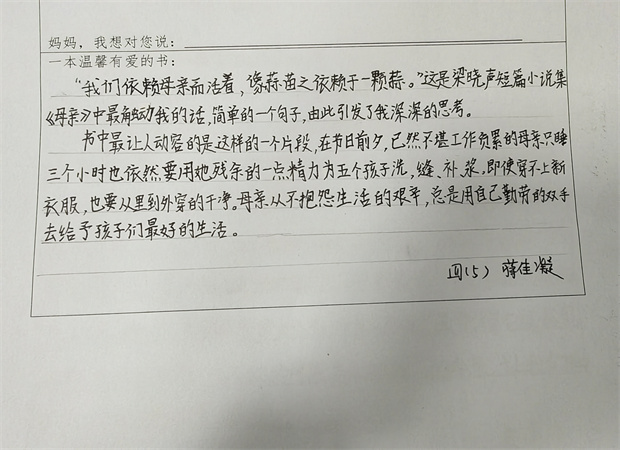 妈妈，我想对您说：
一本温馨有爱的书：
“我们依赖母亲而活着，像蒜苗之依赖于一颗蒜。”这是梁晓声短篇小说集
《母亲》中最触动我的话，简单的一个句子，由此引发了我深深的思考。
书中最让人动容的是这样的一个片段，在节日前夕，已然不堪工作负累的母亲只睡
三个小时也依然要用她残余的一点精力为五个孩子洗、缝、补、浆，即使穿不上新
衣服，也要从里到外穿的干净。母亲从不抱怨生活的艰辛，总是用自己勤劳的双手
去给予孩子们最好的生活。
四(5) 蒋佳凝